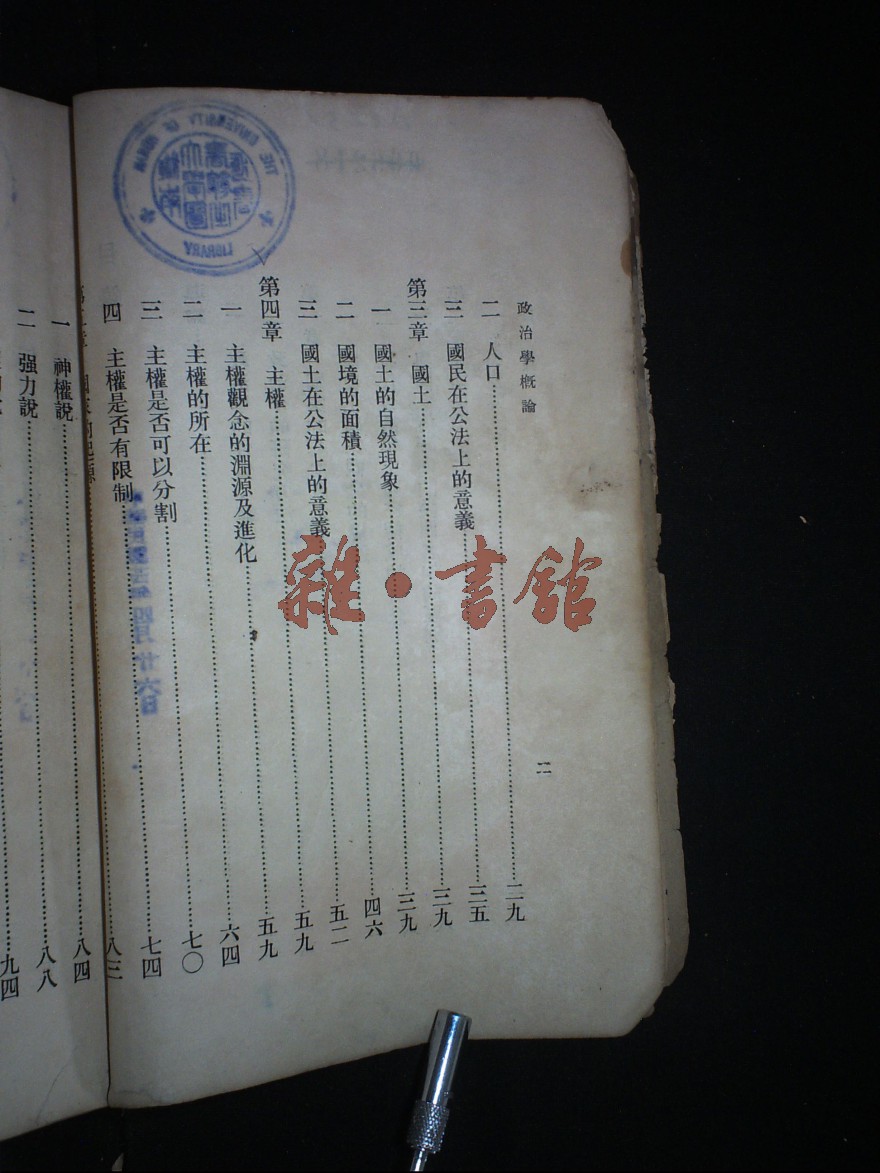 政治學概論
二
二 人口……二九
三 國民在公法上的意義……三五
第三章 國土……三九
一 國土的自然現象……三九
二 國境的面積……四六
三 國土在公法上的意義……五二
第四章 主權……五九
一 主權觀念的淵源及進化……五九
二 主權的所在……六四
三 主權是否可以分割……七〇
四 主權是否有限制……七四
八三
一 神權說……八四
二 强力說……八八
九四
雜·書館
四月廿六日
LIBRARY